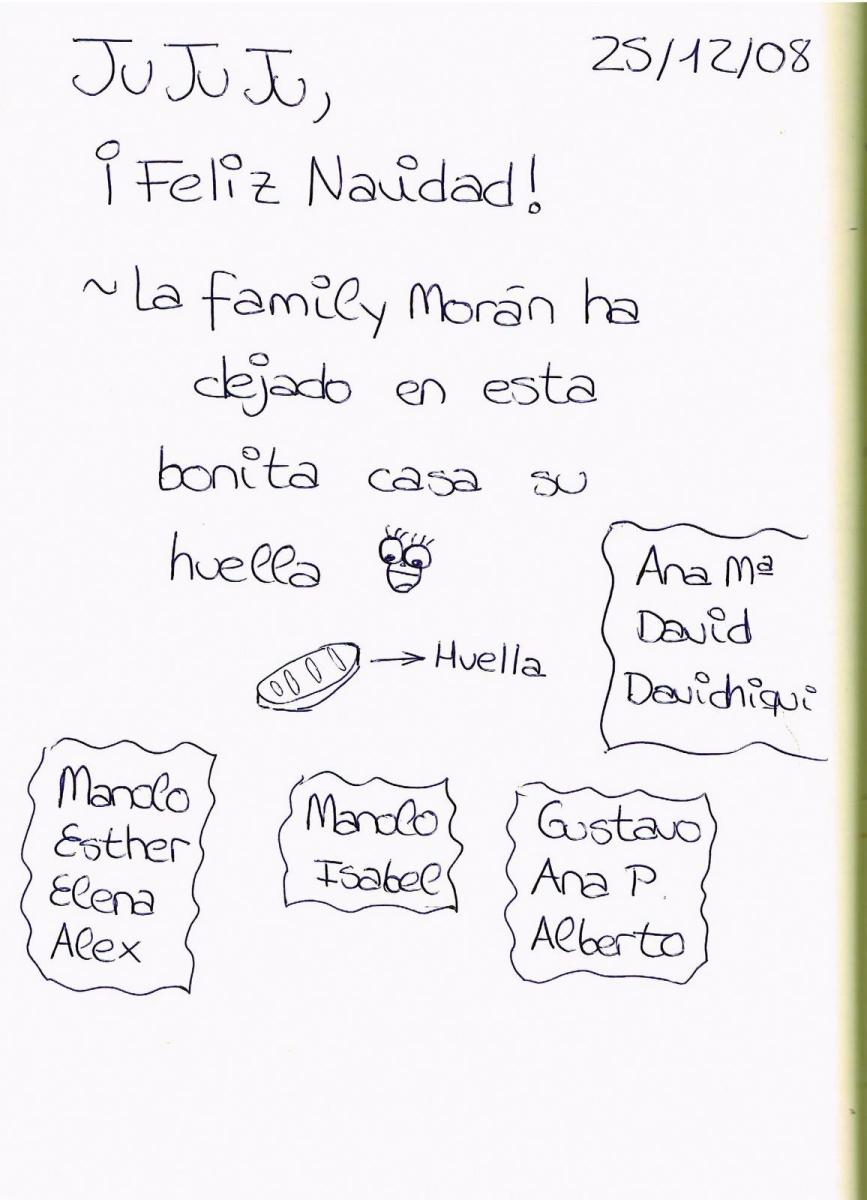 Ju Ju Ju,
25/12/08
¡Feliz Navidad!
~La family Morán ha
dejado en esta
bonita casa su
huella
→ Huella
Ana Mª
David
Davichiqui
Manolo
Esther
Elena
Alex
Manolo
Isabel
Gustavo
Ana P.
Alberto